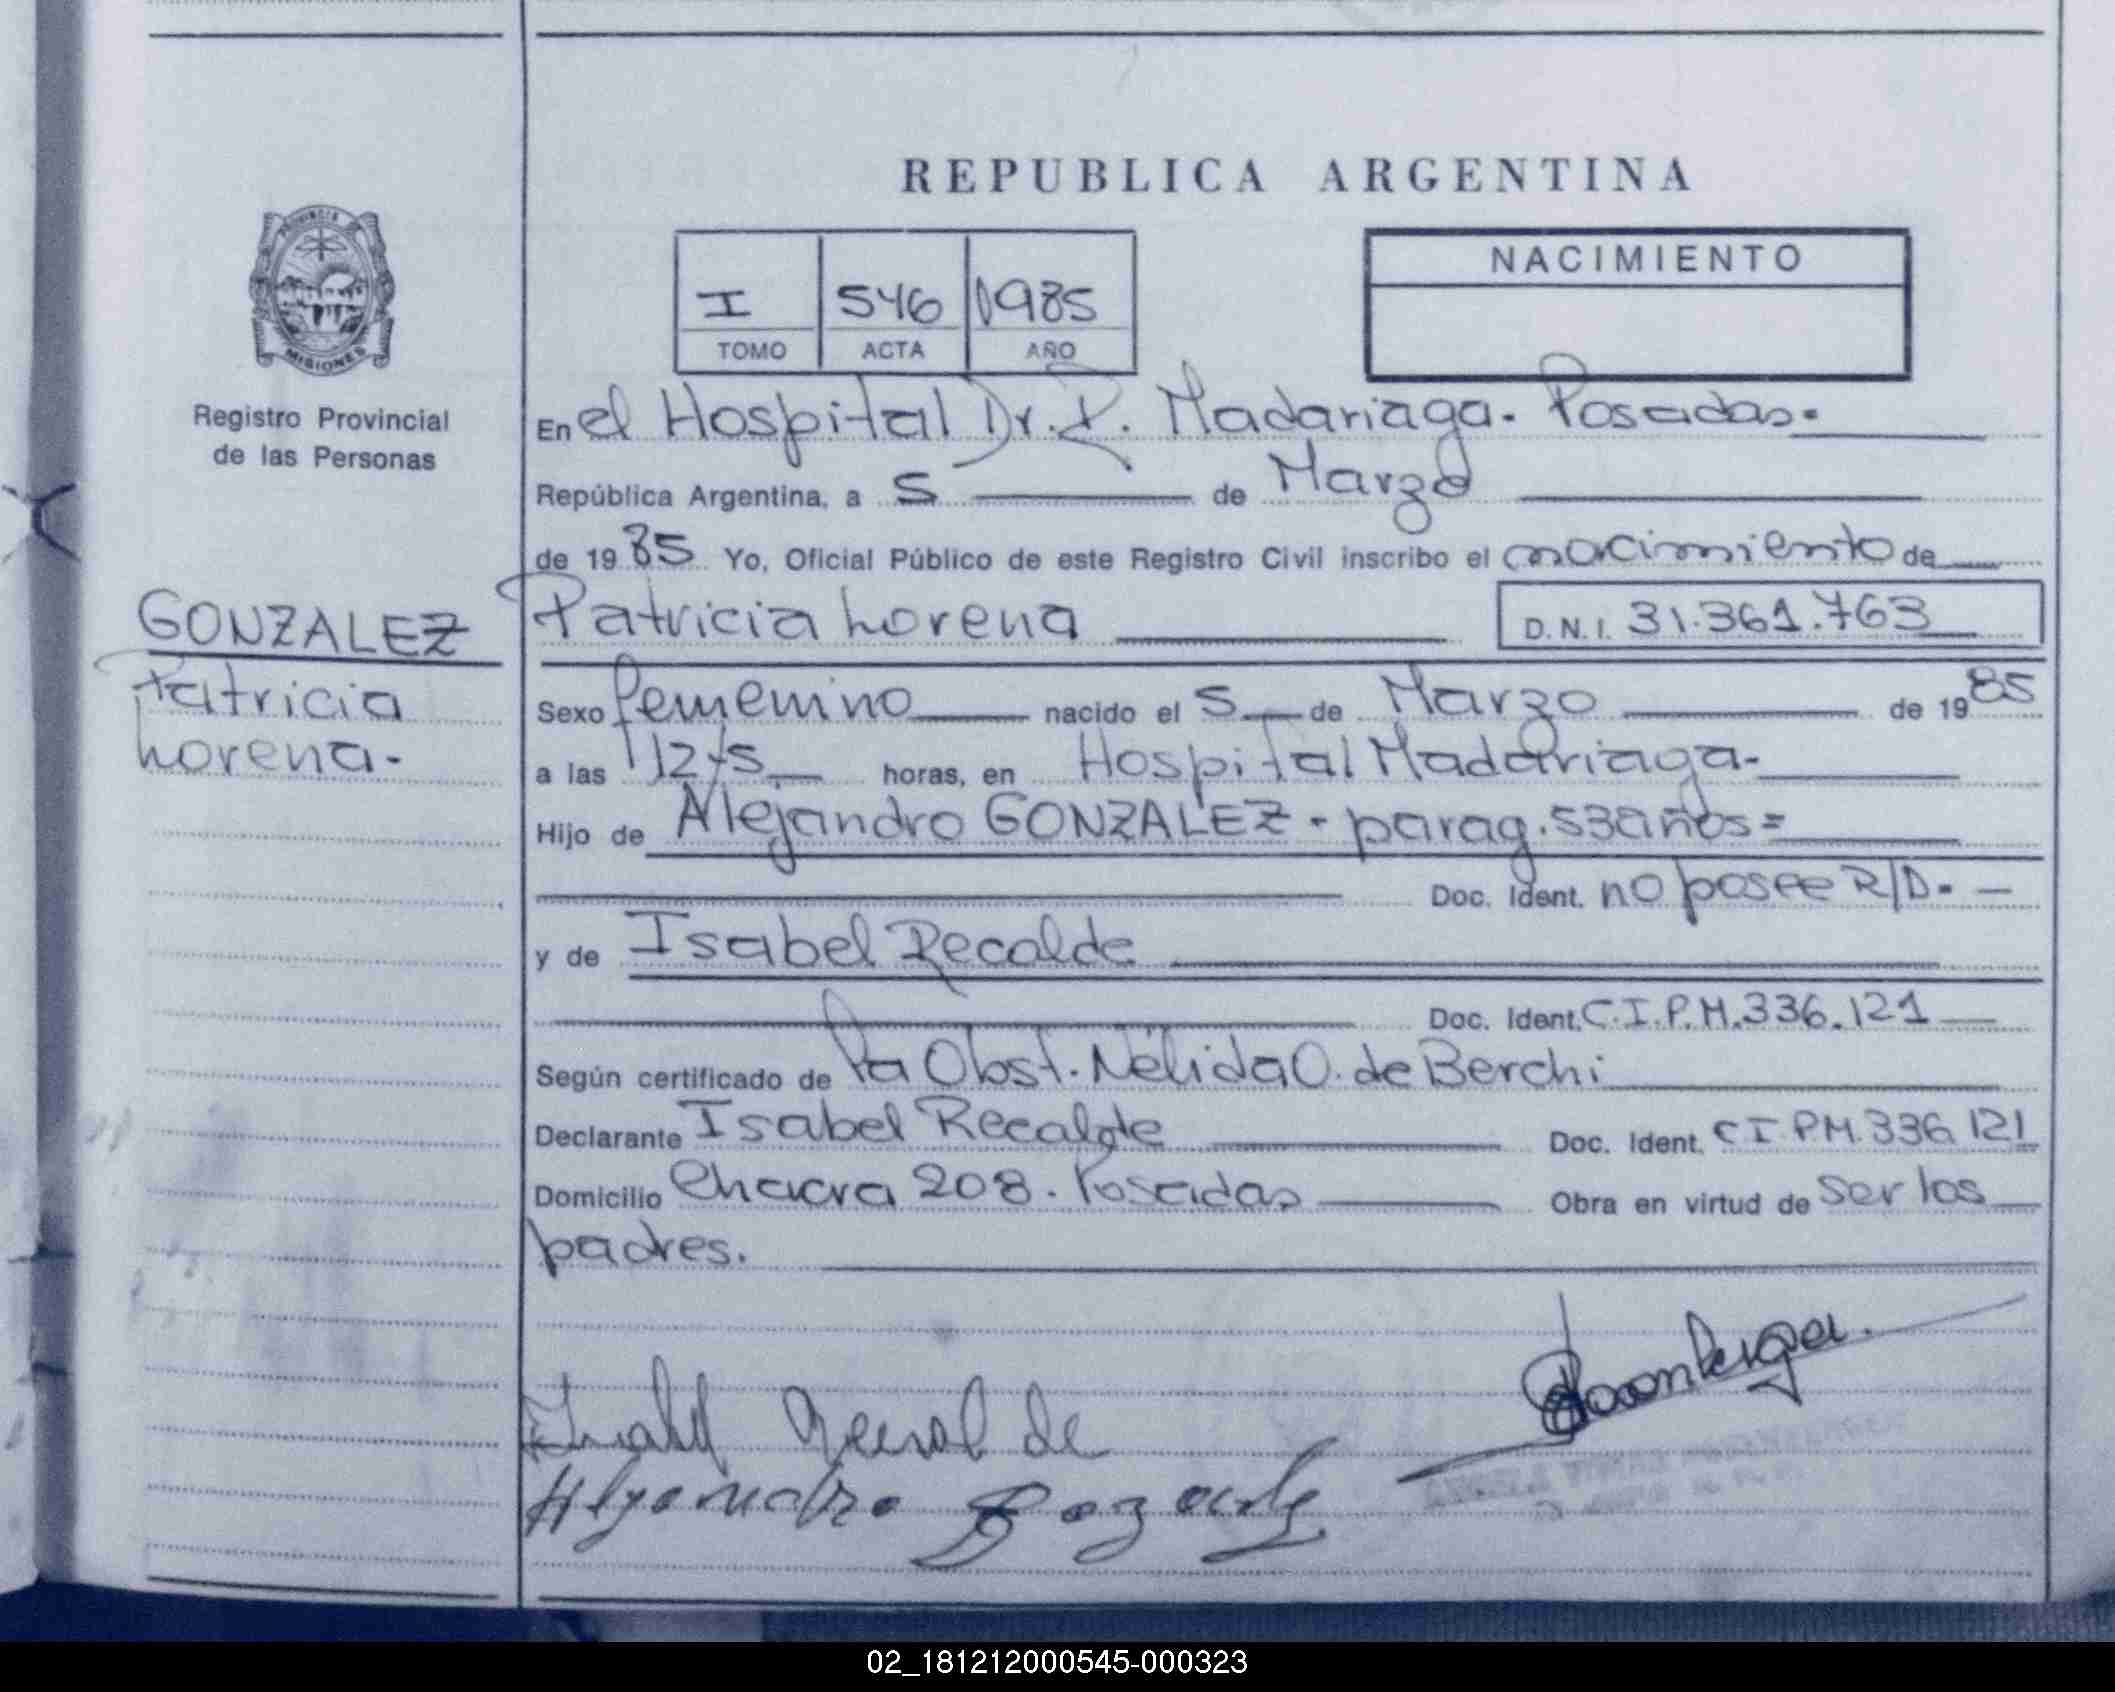 REPUBLICA ARGENTINA
PROVINCIA DE
MISIONES
Registro Provincial
de las Personas
I 546 1985
TOMO ACTA AÑO
NACIMIENTO
En el Hospital Dr. R. Madariaga. Posadas.
República Argentina, a 5 de Marzo
de 1985 Yo, Oficial Público de este Registro Civil inscribo el nacimiento de
GONZALEZ
Patricia
Lorena.
Patricia Lorena D.N.I. 31.361.763
Sexo femenino nacido el 5 de Marzo de 1985
a las horas, en Hospital Madariaga.
Hijo de Alejandro GONZALEZ - parag. 53 años =
Doc. Ident. no posee R/D.
y de Isabel Recalde
Doc. Ident. C.I.P.M. 336.121
Según certificado de la Obst. Nélida O. de Berchi
Declarante Isabel Recalde Doc. Ident. C I. P M. 336 121
Domicilio Chacra 208. Posadas Obra en virtud de ser los
padres.
de
02_181212000545-000323